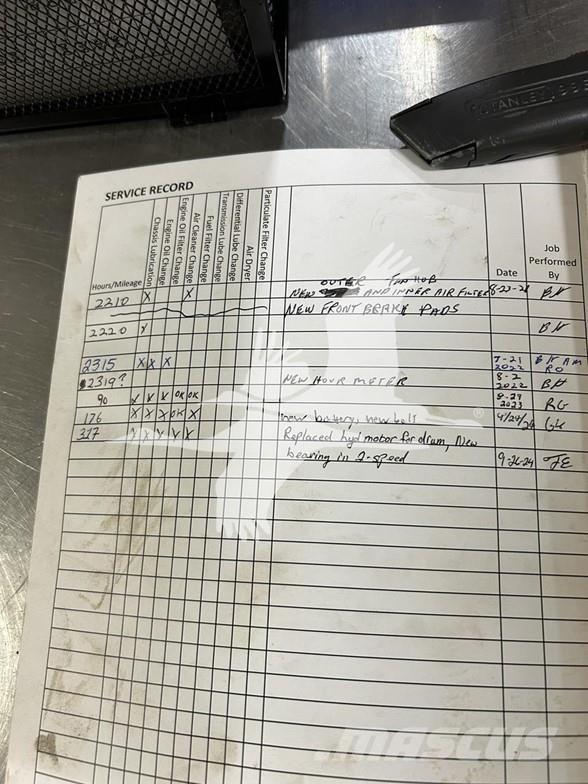 STANLEY
SERVICE RECORD
Hours/Mileage
Chassis Lubrication
Engine Oil Change
Engine Oil Filter Change
Air Cleaner Change
Fuel Filter Change
Transmission Lube Change
Differential Lube Change
Air Dryer
Particulate Filter Change
Date
Job Performed By
OUTER
2210 X X NEW AND INNER AIR FILTER 8-23-21 BH
NEW FRONT BRAKE PADS
2220 X BH
2315 X X X 7-21 2022 BH AM RO
2319? NEW HOUR METER 8-2 2022 BH
90 X X X OK OK 8-29 2023 RG
176 X X X OK X new battery, new belt 4/24/24 GK
317 X X X X X Replaced hyd motor for drum, New
bearing in 2-speed 9-26-24 JE
®
MASCUS